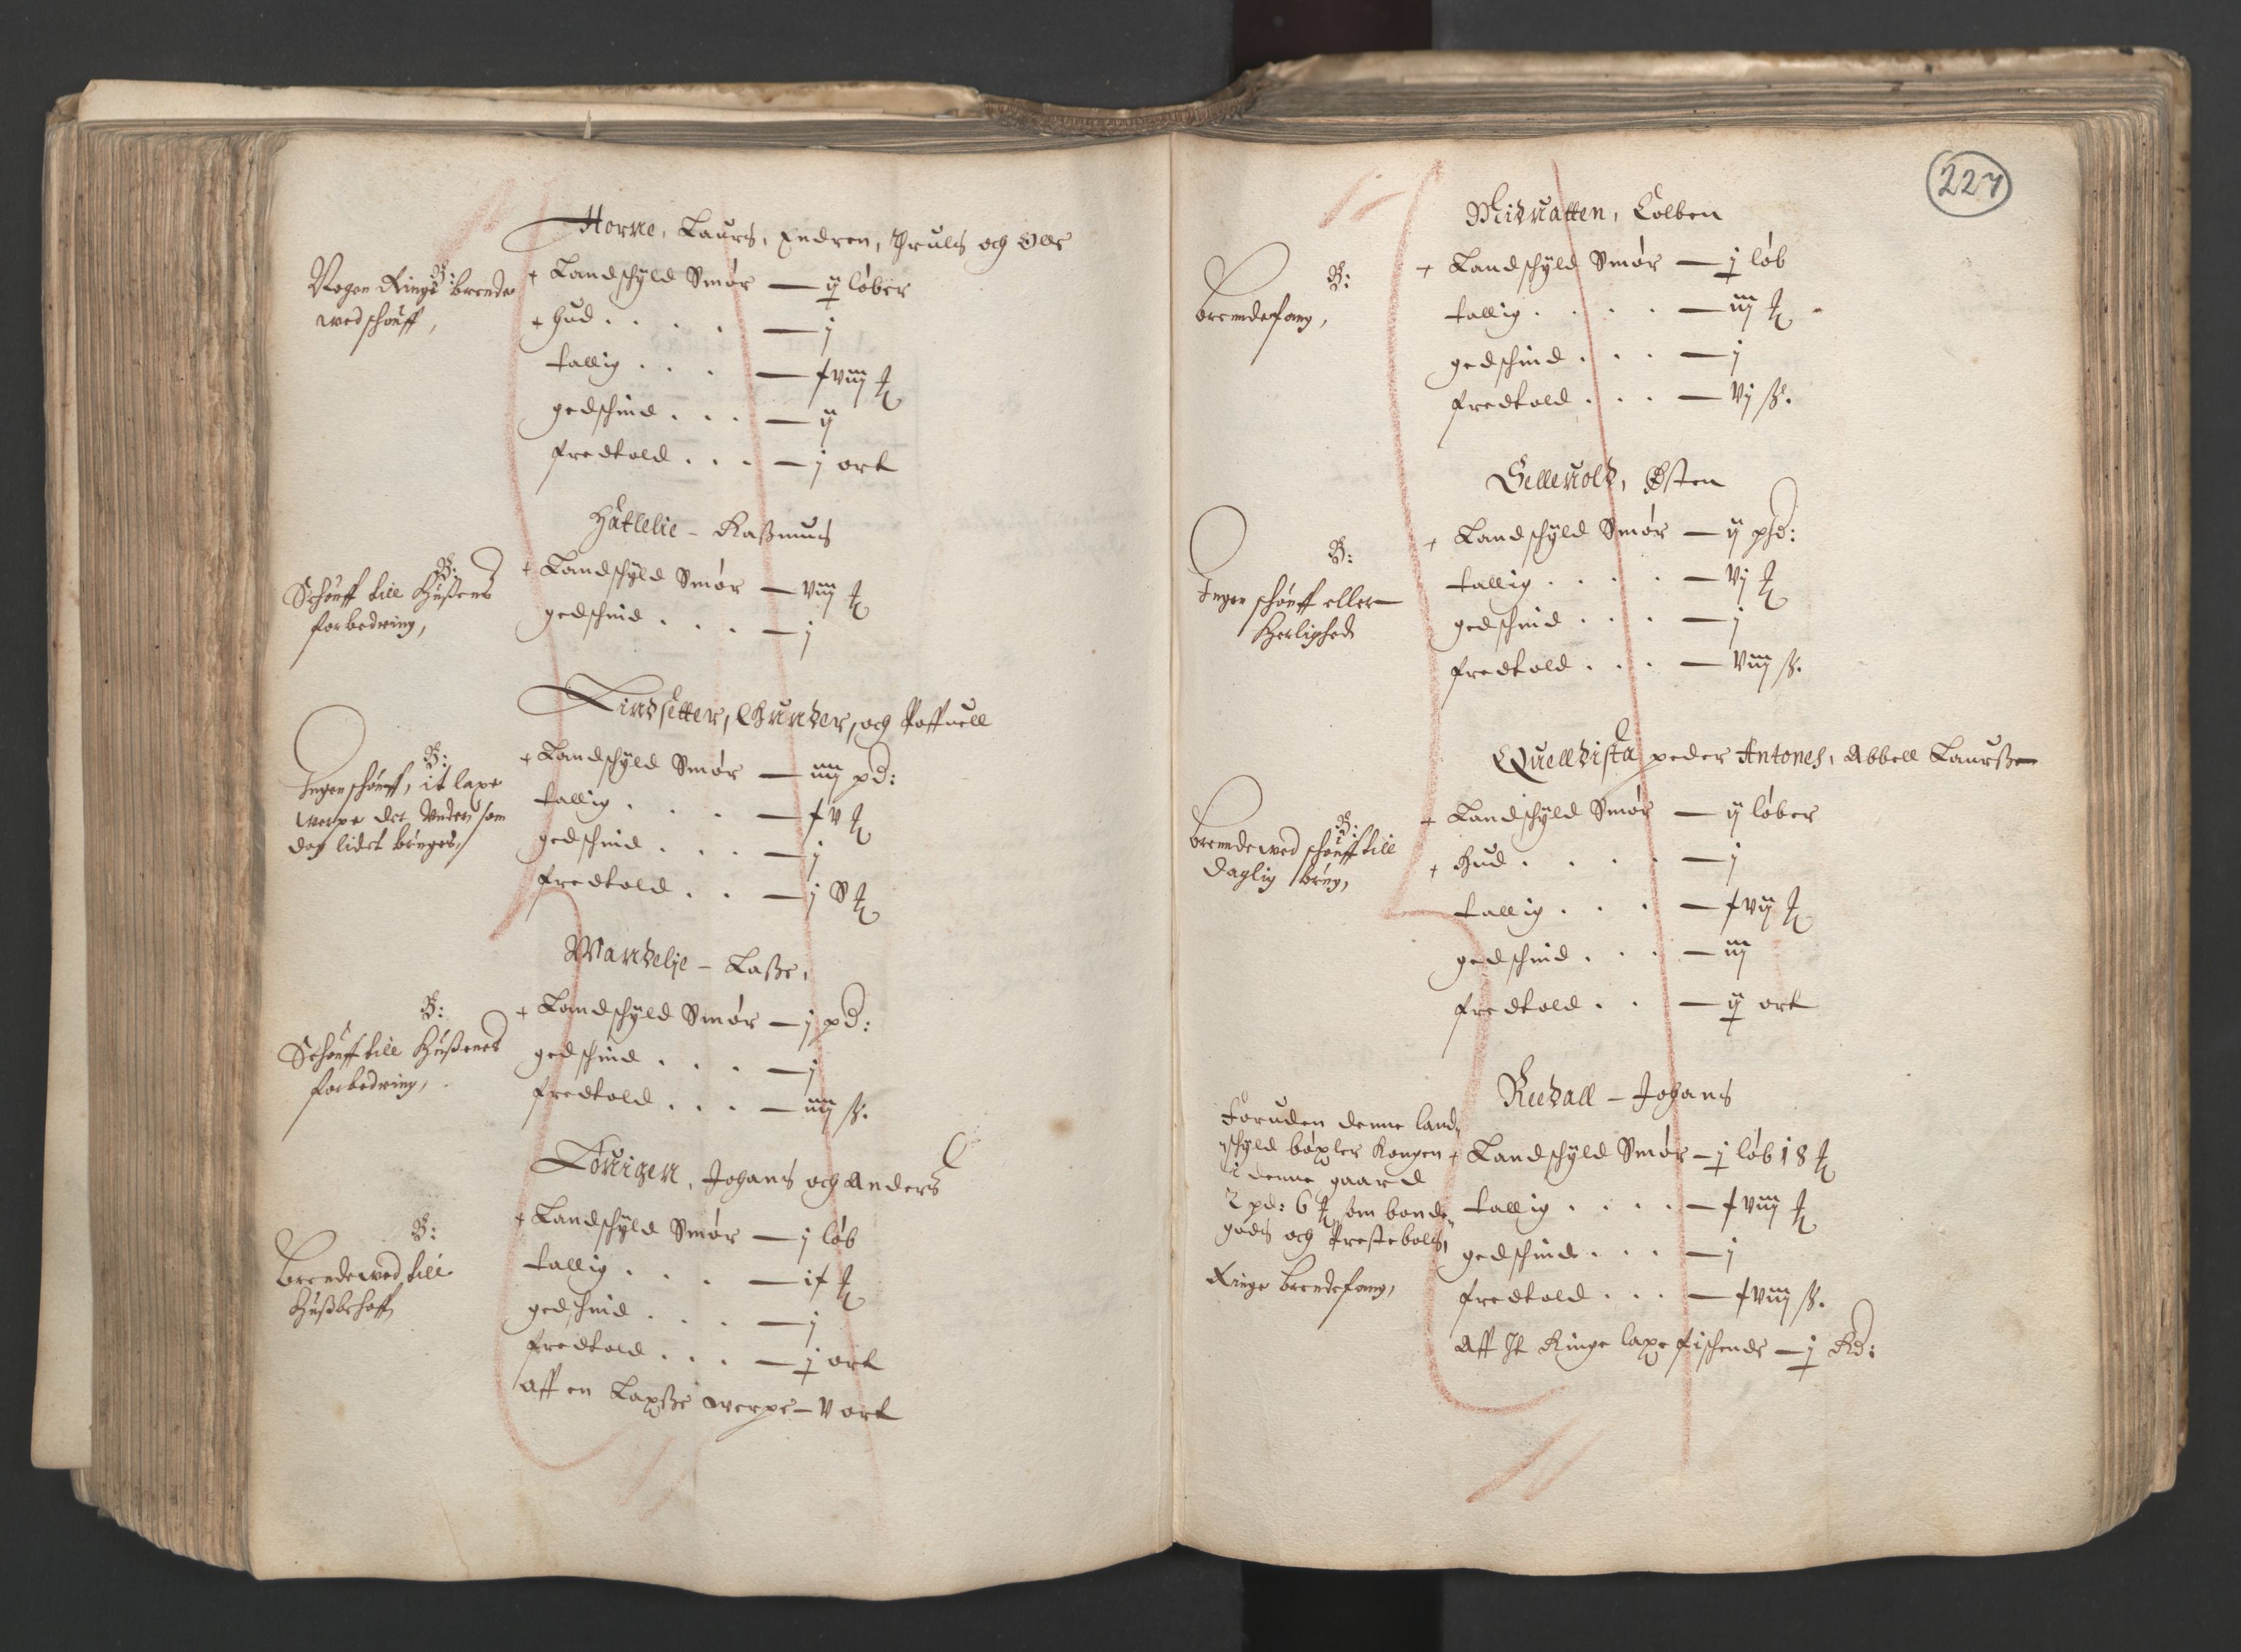 Horne, Laurs, Endren, Thruls och Olle
B:
Nogen Ringe brende
wedschouff,
+ Landschyld Smør — ij løber
+ Hud . . . . — j
tallig . . . — xviij ℔
gedschind . . . — ij
fredtold . . . — j ort
Hatlelie - Raßmus
B:
Schouff till Hußens
forbedring,
+ Landschyld Smør — viij ℔
gedschind . . . — j
Lindsetter, Gunder, och Poffuell
B:
Ingen schouff, it laxe
werpe der Under som
dog lidet bruges,
+ Landschyld Smør — iiij pd:
tallig . . . — xv ℔
gedschind . . . — j
fredtold . . — j
Mandelje - Laße,
B:
Schouff till Hußenes
forbedring,
+ Landschyld Smør — j pd:
gedschind . . . — j
fredtold . . . — iiij ß.
Johans och Anders
B:
Brendewed till
Hußbehoff
+ Landschyld Smør — j løb
tallig . . . — ix ℔
gedschind . . . — j
fredtold . . . — j ort
Aff en Laxße werpe — V ort
227
Miduatten, Colben
B:
brendefang,
+ Landschyld Smør — j løb
tallig . . . . — iij ℔
gedschind . . . — j
fredtold . . . — Vj ß.
Gelleuold, Østen
B:
Ingen schouff eller
Herlighed
+ Landschyld Smør — ij pd:
tallig . . . . — Vj ℔
gedschind . . . — j
fredtold . . . — Viij ß.
Quelldista peder Antones, Abbell Laurße
B:
brendewed schouff till
daglig brug,
+ Landschyld Smør — ij løber
+ Hud . . . . — j
tallig . . . — xvij ℔
gedschind . . . — iij
fredtold . . — ij ort
Reedall - Johans
Foruden denne land„
„schyld bøxler Kongen
i denne gaard
2 pd: 6 ℔ som bonde„
gods och Prestebols,
Ringe brendefang,
+ Landschyld Smør — j løb 18 ℔
tallig . . . . — xviij ℔
gedschind . . . — j
fredtold . . . — xviij ß.
Aff It Ringe laxe fischende — j Rd: